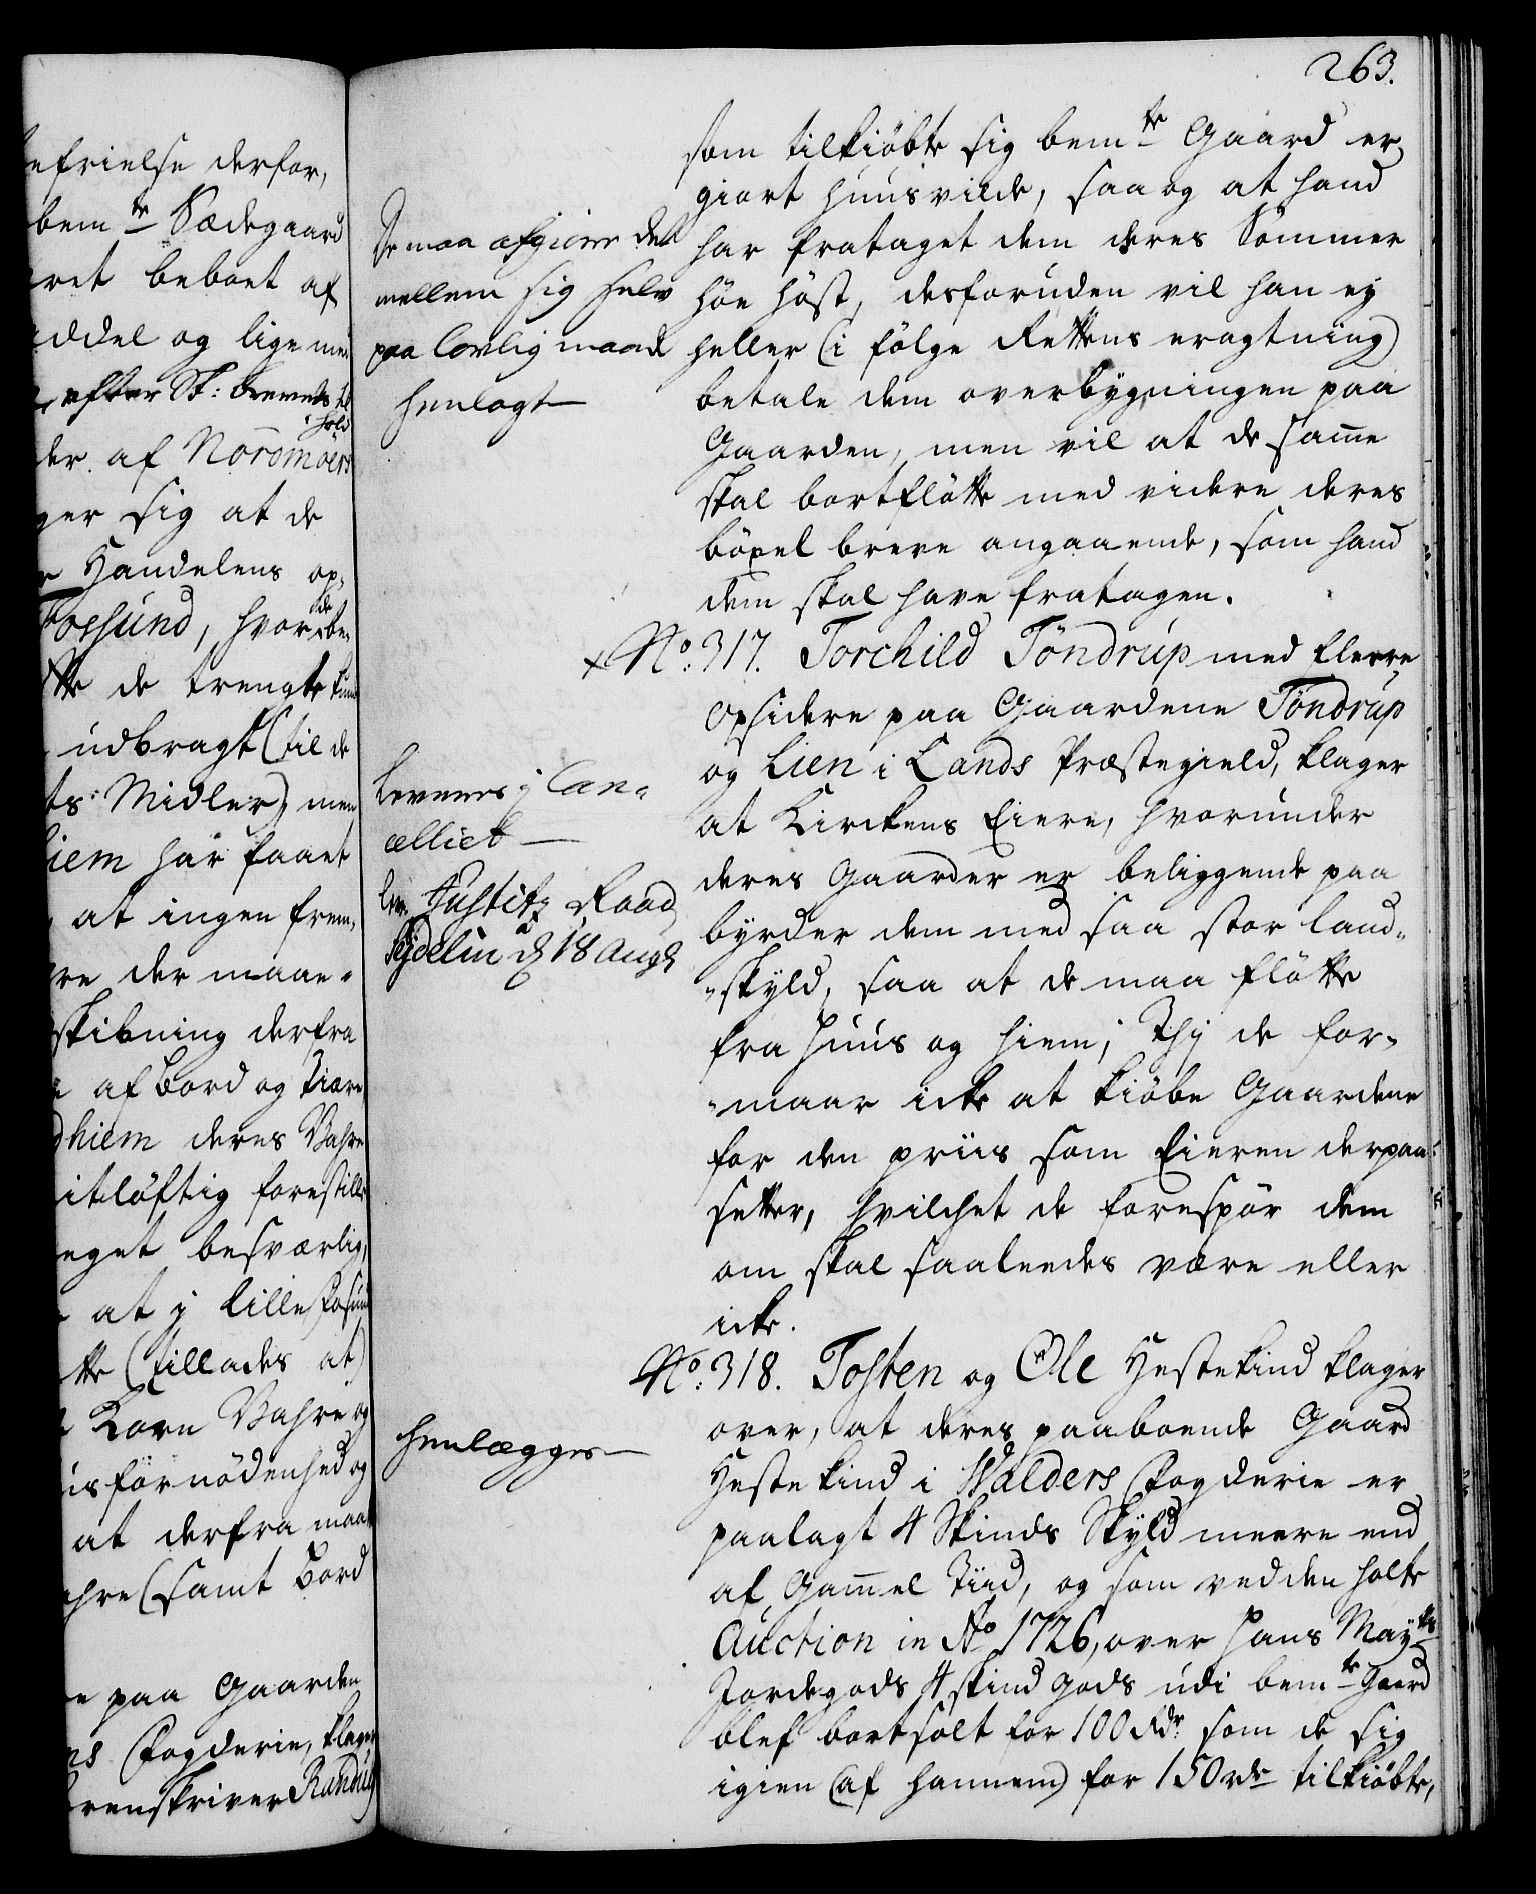 263.
efrielse derfor,
bem.te Sædegaard
ret beboet af
iddel og lige men
efter St: brevets
hold
der af Nordmoers
ger sig at de
Handelens op¬
Fossund, hvor de be¬
de trengte
udbragt (til de
ts: Midler), men
iem har faaet
at ingen frem¬
re der maae
skibning derfra
af Bord og Tiære
dhiem deres Vahre
itløftig forestille
eget besværlig,
at i lille Fosund
tte (tillades at)
Korn Vahre og
is fornødenhed og
at derfra maa
ahre (samt Bord
e paa Gaarden
ns Fogderie, klager
renskriver Randulf
De maa afgiøre det
mellem sig selv
paa lovlig maade
henlagt
leveres i Can¬
celliet
lev. Justitz Raad
Seydelin d 18 Aug
henlægges
som tilkiøbte sig bem.te Gaard er
giort huusvilde, saa og at hand
har frataget dem deres Sommer
høe høst, desforuden vil han ey
heller (i følge Rettens eragtning)
betale dem overbygningen paa
Gaarden, men vil at de samme
skal bortfløtte med videre deres
böxel breve angaaende, som hand
dem skal have fratagen.
x No: 317. Torchild Tøndrup med fleere
Opsidere paa Gaardene Tøndrup
og Lien i Lands Præstegield, klager
at Kirckens Eiere, hvorunder
deres Gaarder er beliggende paa
byrder dem med saa stor land¬
skyld, saa at de maa fløtte
fra huus og hiem; Thi de for¬
maar icke at kiøbe Gaardene
for den priis som Eieren derpaa
setter, hvilchet de forespør dem
om skal saaleedes være eller
icke.
No: 318. Tosten og Ole Hestekind klager
over, at deres paaboende Gaard
Hestekind i Walders Fogderie er
paalagt 4 Skinds Skyld meere end
af Gammel Tiid, og som ved den holte
Auction in Ao 1726, over Hans May.ts
Jordegods 4 skind gods udi bem.te Gaard
blef bortsolt for 100 Rdr. som de sig
igien (af hannem) for 150 rdr tilkiøbte,